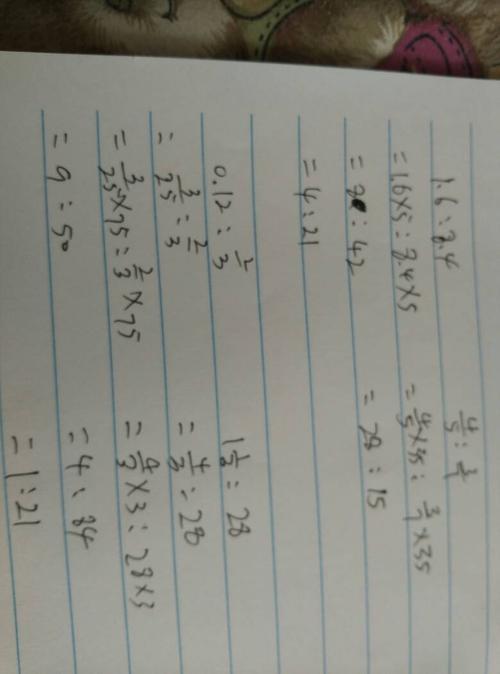 1.6 : 8.4
= 1.6×5 : 8.4×5
= 8 : 42
= 4 : 21
4/5 : 3/7
= 4/5×35 : 3/7×35
= 28 : 15
0.12 : 2/3
= 3/25 : 2/3
= 3/25×75 : 2/3×75
= 9 : 50
1 1/3 : 28
= 4/3 : 28
= 4/3×3 : 28×3
= 4 : 84
= 1 : 21